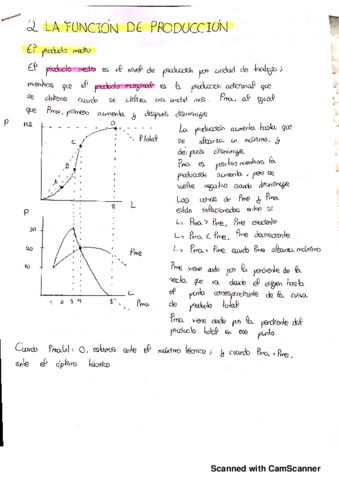 2. LA FUNCIÓN DE PRODUCCIÓN
El producto medio
El producto medio es el nivel de producción por unidad de trabajo;
mientras que el producto marginal es la producción adicional que
se obtiene cuando se utiliza una unidad más. Pma, al igual
que Pme, primero aumenta y después disminuye
P
112
D
C
B
A
P total
8
L
La producción aumenta hasta que
se alcanza un máximo, y
después disminuye
Pma es positivo mientras la
producción aumenta, pero se
vuelve negativo cuando disminuye
Las curvas de Pme y Pma
están relacionadas entre sí:
L> Pma > Pme, Pme creciente
L> Pma < Pme, Pme decreciente
L> Pma = Pme cuando Pme alcanza máximo
P
30
20
10
Pme
1 2 3 4 8 L
Pma
Pme viene dado por la pendiente de la
recta que va desde el origen hasta
el punto correspondiente de la curva
de producto total
Pma viene dado por la pendiente del
producto total en ese punto
Cuando Pma(L) = 0, estamos ante el máximo técnico; y cuando Pma = Pme,
ante el óptimo técnico
Scanned with CamScanner